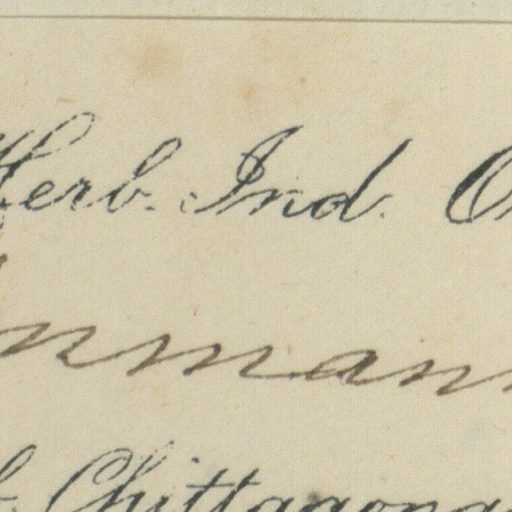 Herb. Ind. O
nmann
Chittagong